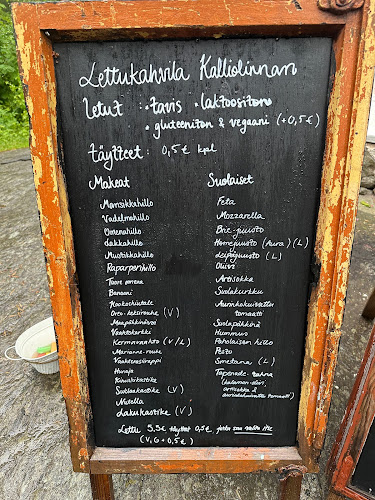 Lettukahvila Kalliolinnan
Letut : • tavis • laktoositon
• gluteeniton & vegaani (+0,5€)
Täytteet : 0,5€ kpl
Makeat
Mansikkahillo
Vadelmahillo
Omenahillo
Lakkahillo
Mustikkahillo
Raparperihillo
Tuore omena
Banaani
Kookoshiutale
Oreo-keksirouhe (V)
Maapähkinävoi
Vaahtokarkki
Kermavaahto (V/L)
Marianne-rouhe
Vaahterasiirappi
Hunaja
Kinuskikastike
Suklaakastike (V)
Nutella
Lakukastike (V)
Suolaiset
Feta
Mozzarella
Brie-juusto
Homejuusto (Aura) (L)
Leipäjuusto (L)
Oliivi
Artisokka
Suolakurkku
Aurinkokuivattu
tomaatti
Suolapähkinä
Hummus
Paholaisen hillo
Pesto
Smetana (L)
Tapenade-tahna
artisokka &
aurinkokuivattu tomaatti)
Lettu 5,5€ täytteet 0,5€,
(V,G +0,5€)